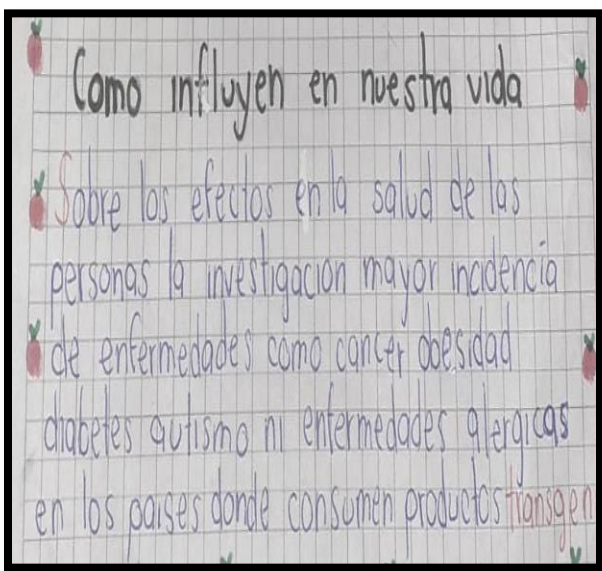 Como influyen en nuestra vida
Sobre los efectos en la salud de las
personas la investigacion mayor incidencia
de enfermedades como cancer obesidad
diabetes autismo ni enfermedades alergicas
en los paises donde consumen productos transgen